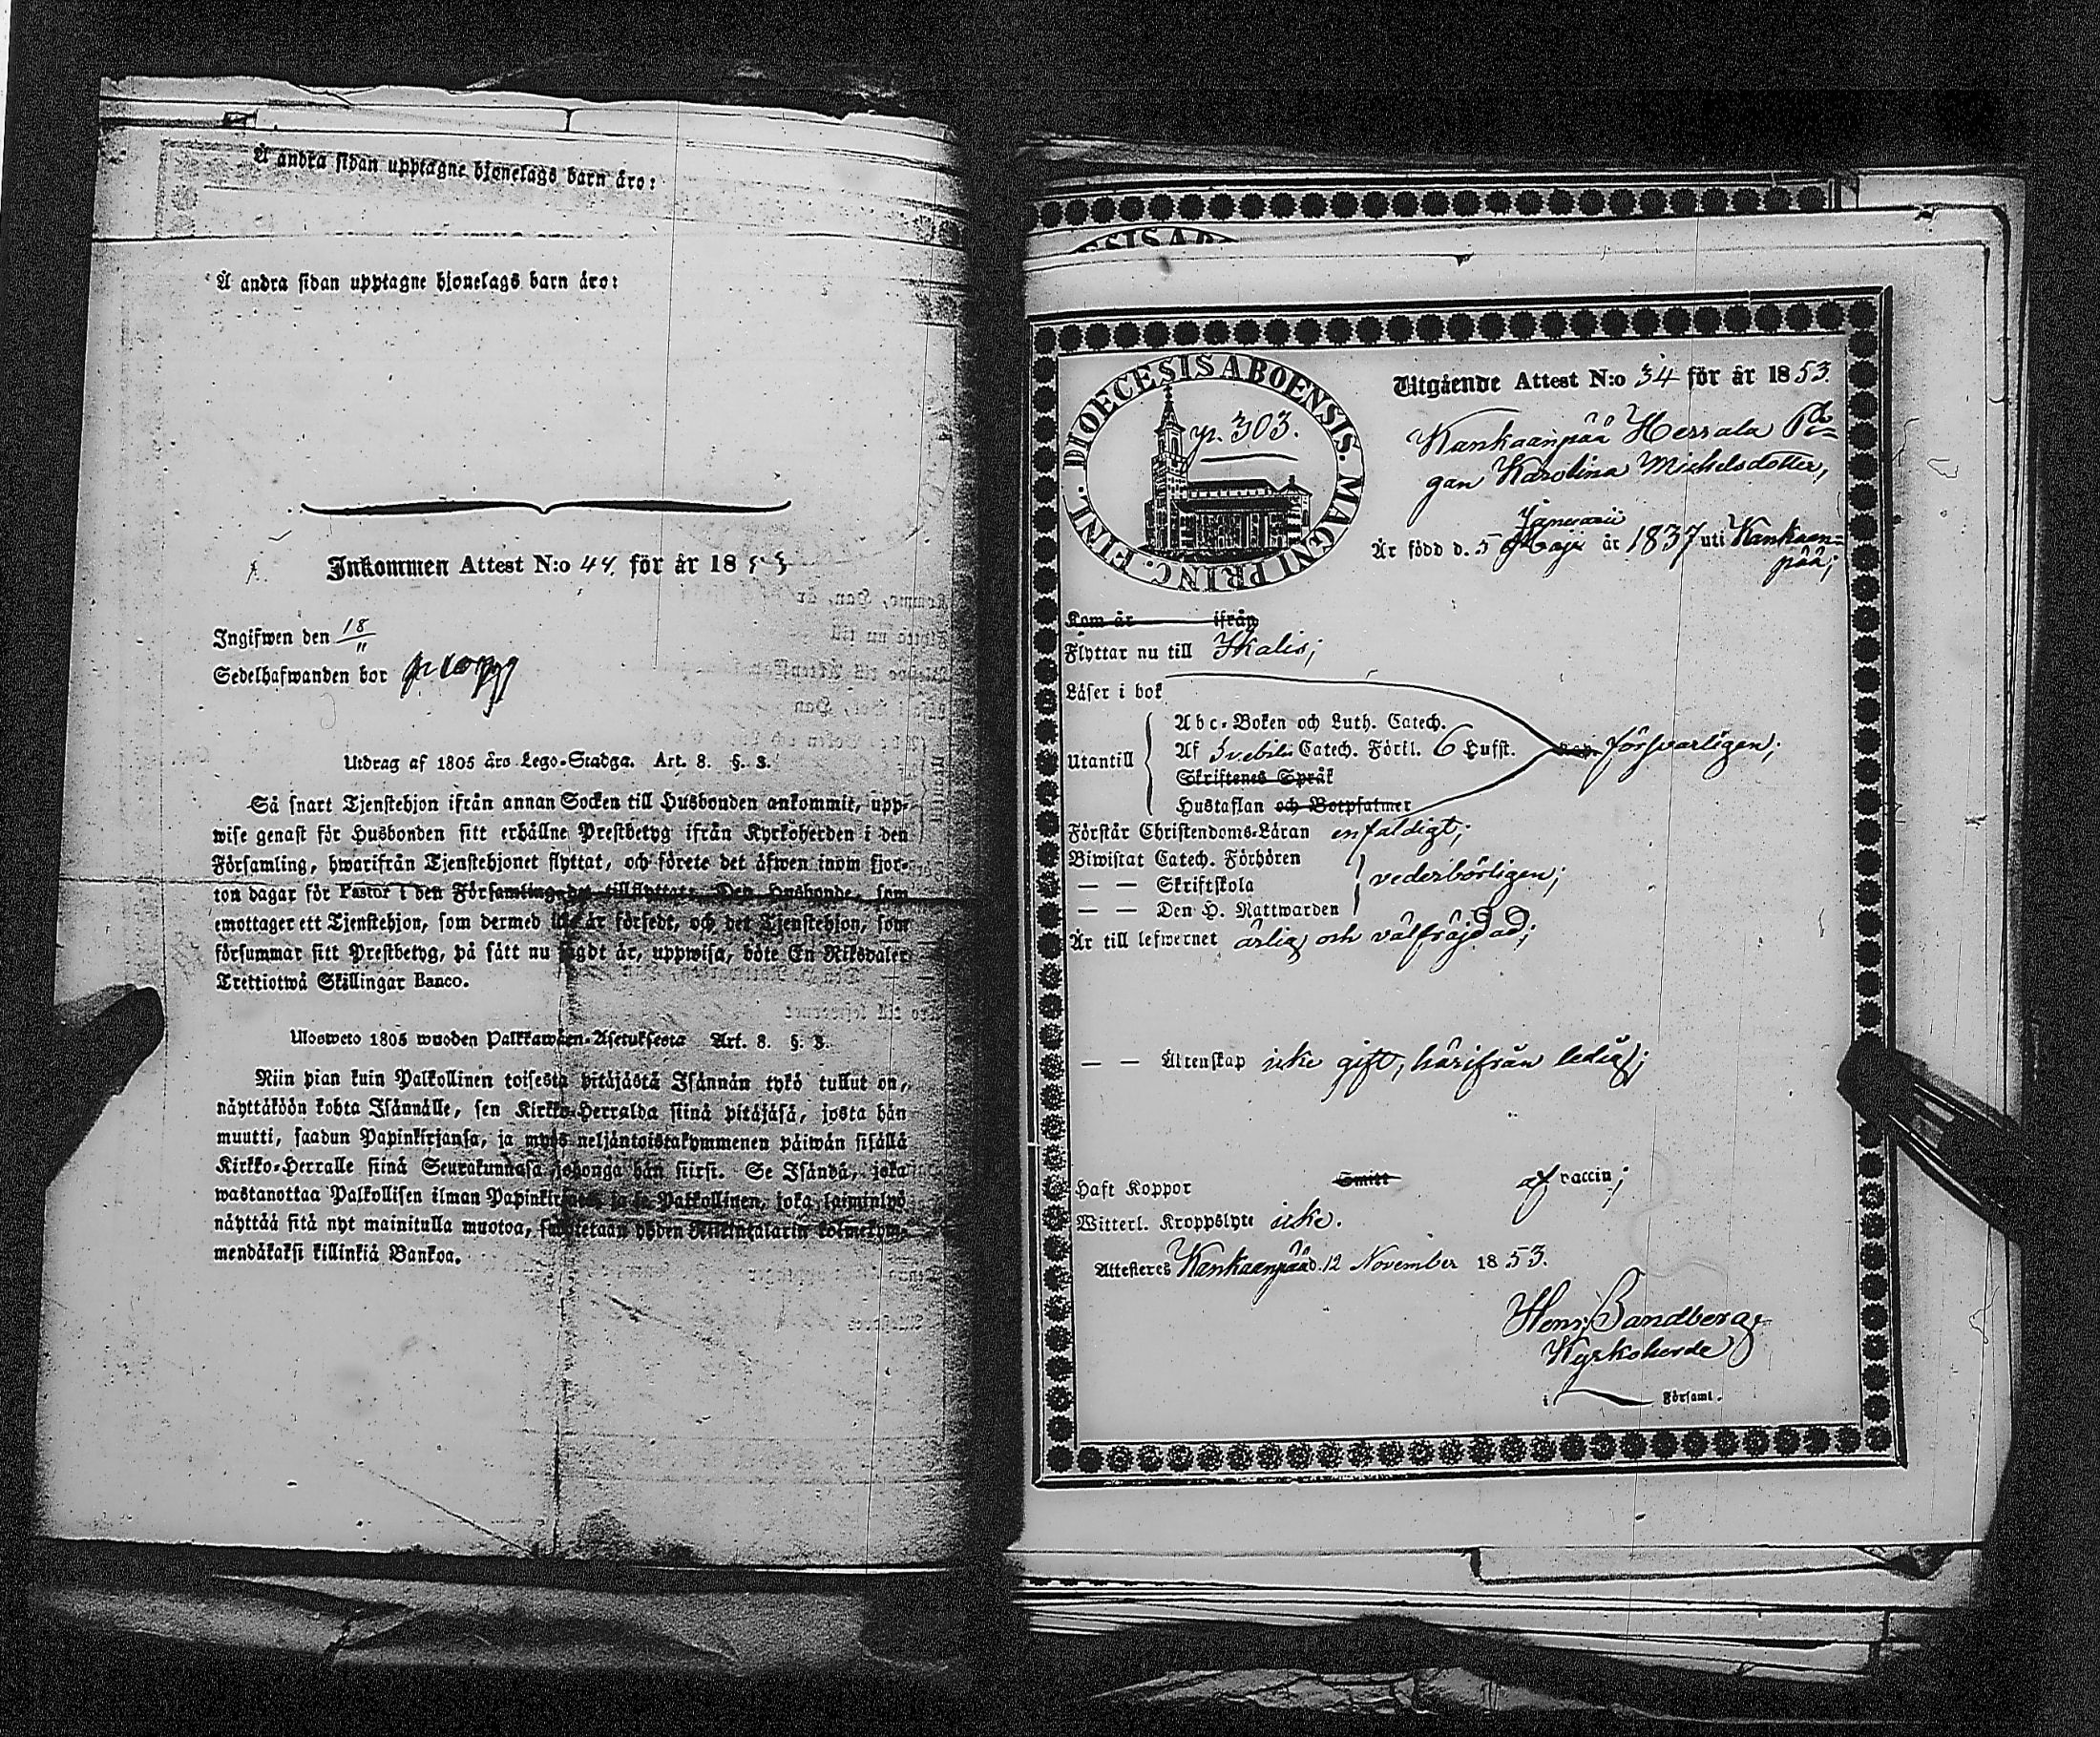 Å andra sidan upptagne hjonelags barn äro:
Å andra sidan upptagne hjonelags barn äro:
Inkommen Attest N:o 44. för år 18
Ingifwen den 18/11
Sedelhafwanden bor
Utdrag af 1805 års Lego-Stadga. Art. 8. §. 3.
Så snart Tjenstehjon ifrån annan Socken till Husbonden ankommit, upp-
wise genast för Husbonden sitt erhållne Prestbetyg ifrån Kyrkoherden i den
Församling, hwarifrån Tjenstehjonet flyttat, och förete det äfwen inom fjor-
ton dagar för Pastor i den Församling det tillflyttat. Den Husbonde, som
emottager ett Tjenstehjon, som dermed är försedt, och det Tjenstehjon, som
försummar sitt Prestbetyg, på sätt nu sagdt är, uppwisa, böte En Riksdaler
Trettiotwå Skillingar Banco.
Ulosweto 1805 wuoden Palkkawäen-Asetuksesta Art. 8. §. 3.
Niin pian kuin Palkollinen toisesta pitäjästä Isännän tykö tullut on,
näyttäköön kohta Isännälle, sen Kirkko-Herralda siinä pitäjäsä, josta hän
muutti, saadun Papinkirjansa, ja myös neljäntoistakymmenen päiwän sisällä
Kirkko-Herralle siinä Seurakunnasa johonga hän siirsi. Se Isändä, joka
wastanottaa Palkollisen ilman Papinkirjata, ja se Palkollinen, joka laiminlyö
näyttää sitä nyt mainitulla muotoa, yhden Riikintalarin kolmekym-
mendäkaksi killinkiä Bankoa.
DIOECESIS ABOENSIS. MAGNI PRINC. FINL.
p. 303.
Utgående Attest N:o 34 för år 1853.
Kankaanpää Herrala Pi-
gan Karolina Michelsdotter,
Januarii
Är född d. 5 Maji år 1837 uti Kankaan-
pää;
Kom år ifrån
Flyttar nu till Ikalis;
Läser i bok
Abc-Boken och Luth. Catech.
Utantill Af Svebilii Catech. Förkl. 6 Hufst. försvarligen;
Skriftenes Språk
Hustaflan och Botpsalmer
Förstår Christendoms-Läran enfaldigt;
Biwistat Catech. Förhören
— — Skriftskola vederbörligen;
— — Den H. Nattwarden
Är till lefwernet ärlig och välfräjdad;
— — Äktenskap icke gift, härifrån ledig;
Haft Koppor Smitt af vaccin;
Witterl. Kroppslyte icke.
Attesteres Kankaanpää d. 12 November 1853.
Henr. Sandberg
Kyrkoherde
i Församl.